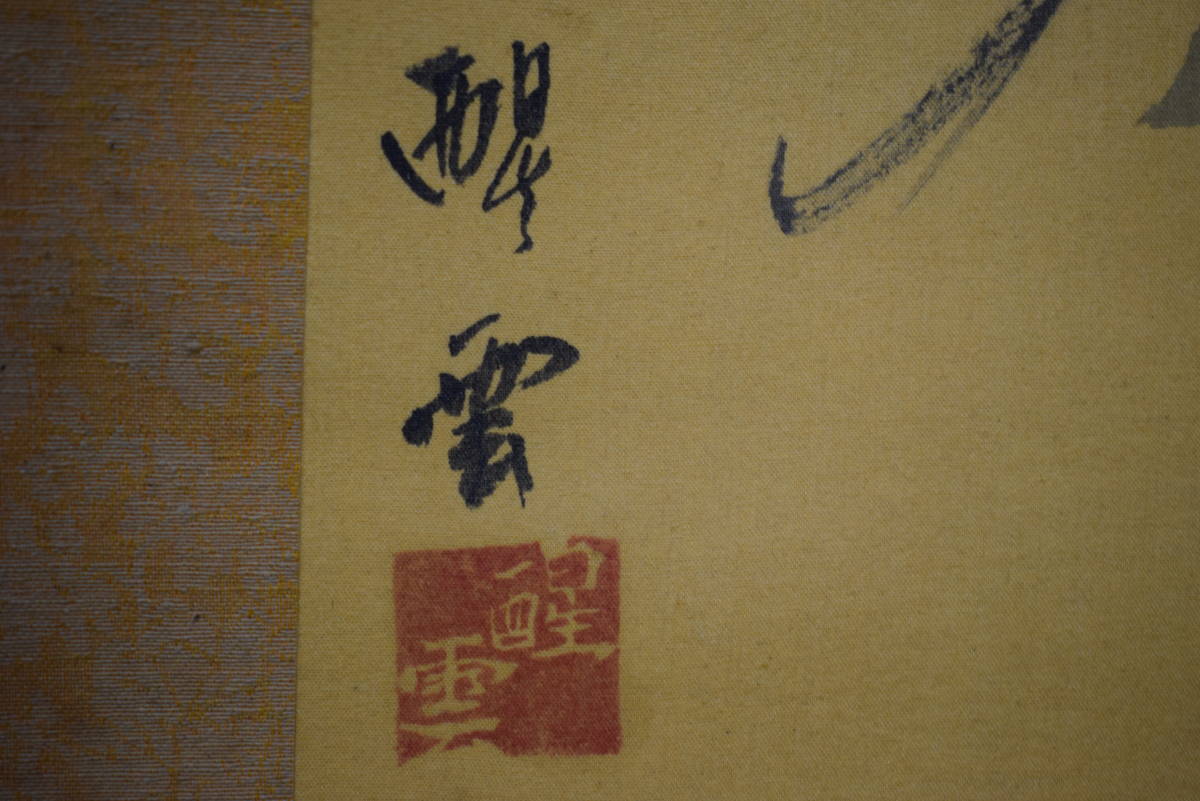 醒雲
醒雲